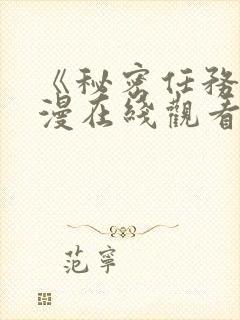 《秘密任務
漫在綫觀看
范寧